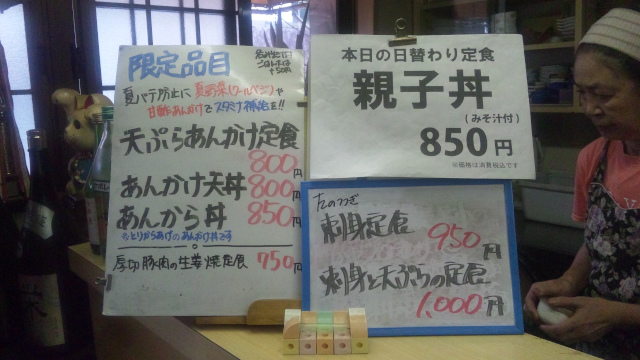 限定品目
名物生だけ
ごはん大は
+50円
夏バテ防止に 夏野菜(クールベジ)や
甘酢あんかけでスタミナ補給を!!
天ぷらあんかけ定食
800円
あんかけ天丼 800円
あんから丼 850円
※とりからあげのあんかけ丼です
厚切豚肉の生姜焼定食 750円
本日の日替わり定食
親子丼
(みそ汁付)
850円
※価格は消費税込です
たのつぎ
刺身定食 950円
刺身と天ぷらの定食
1,000円